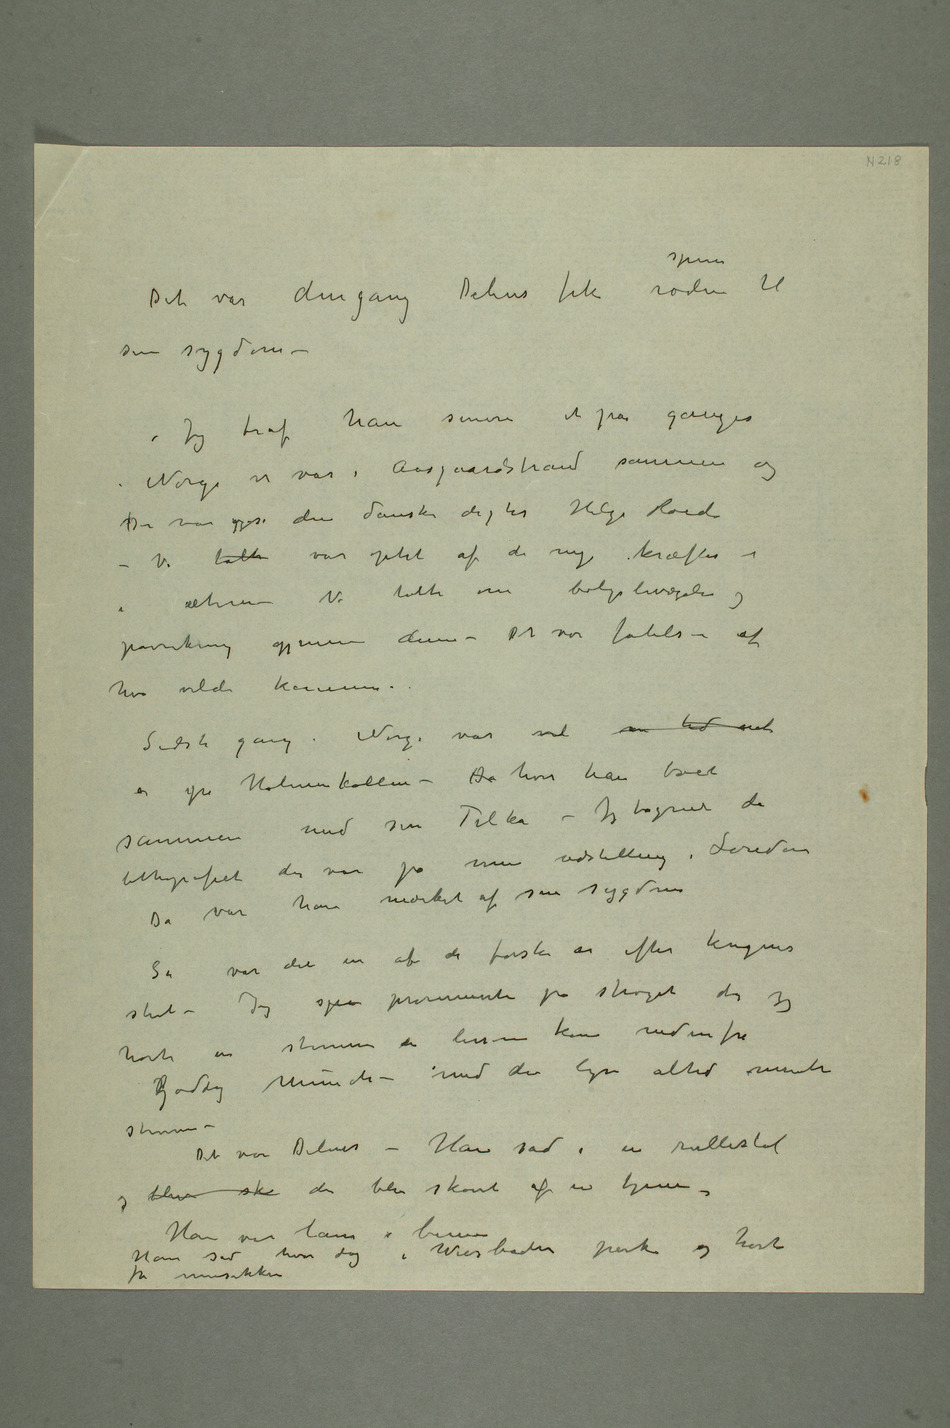 N 218
spiren
Det var dengang Delius fik roden til
sin sygdom –
Jeg traf ham senere et par ganger
i Norge vi var i Aasgaardstrand sammen og
Der var også den danske digter Helge Rode
– Vi talte var optat af de nye kræfter –
i æteren Vi talte om bølgebevægelse og
påvirkning gjennem denne – Det var følelse – af
hva vilde komme –
Sidste gang i Norge var vel
på Holmenkollen – Da hvor han bode
sammen med sin Jelka – Jeg tegned da
lithografiet der var på min udstilling i London
Da var han mærket af sin sygdom
Så var det en af de første år efter krigens
slut – Jeg promenerte på strøget da jeg
hørte en stemme en lys – en kom nedenfra
Goddag Munch – med den lyse altid muntre
stemme –
Det var Delius – Han sad i en rullestol
og blev ske der blev skøvet af en tjener –
Han var lam i benene
Han sad hver dag i Wiesbaden park og hørte
på musikken